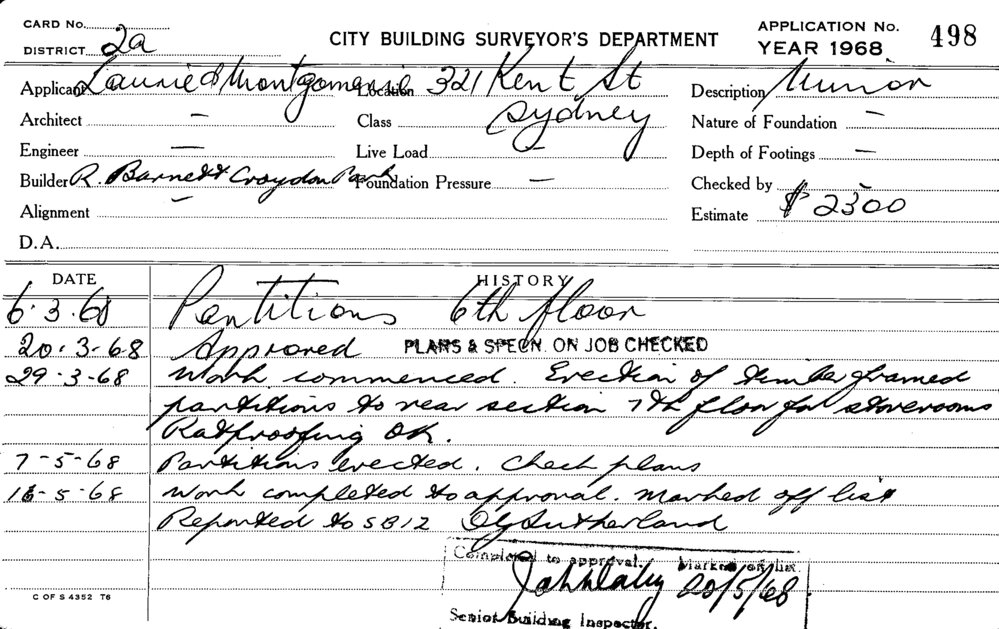 CARD No.
DISTRICT 2a
CITY BUILDING SURVEYOR'S DEPARTMENT
APPLICATION No. 498
YEAR 1968
Applicant Laurie & Montgomerie Location 321 Kent St
Sydney
Description Minor
Architect — Class
Nature of Foundation —
Engineer — Live Load —
Depth of Footings —
Builder R. Barnett Croydon Park Foundation Pressure —
Checked by —
Alignment —
Estimate $ 2300
D.A.
DATE HISTORY
6.3.68 Partitions 6th floor
20.3-68 Approved PLANS & SPECN. ON JOB CHECKED
29.3-68 Work commenced. Erection of timber framed
partitions to rear section 7th floor for storerooms
Ratproofing OK.
7-5-68 Partitions erected. Check plans
16-5-68 Work completed to approval. Marked off list
Reported to SB12 Sutherland
Completed to approval. Marked off list.
20/5/68
Senior Building Inspector.
C OF S 4352 T6